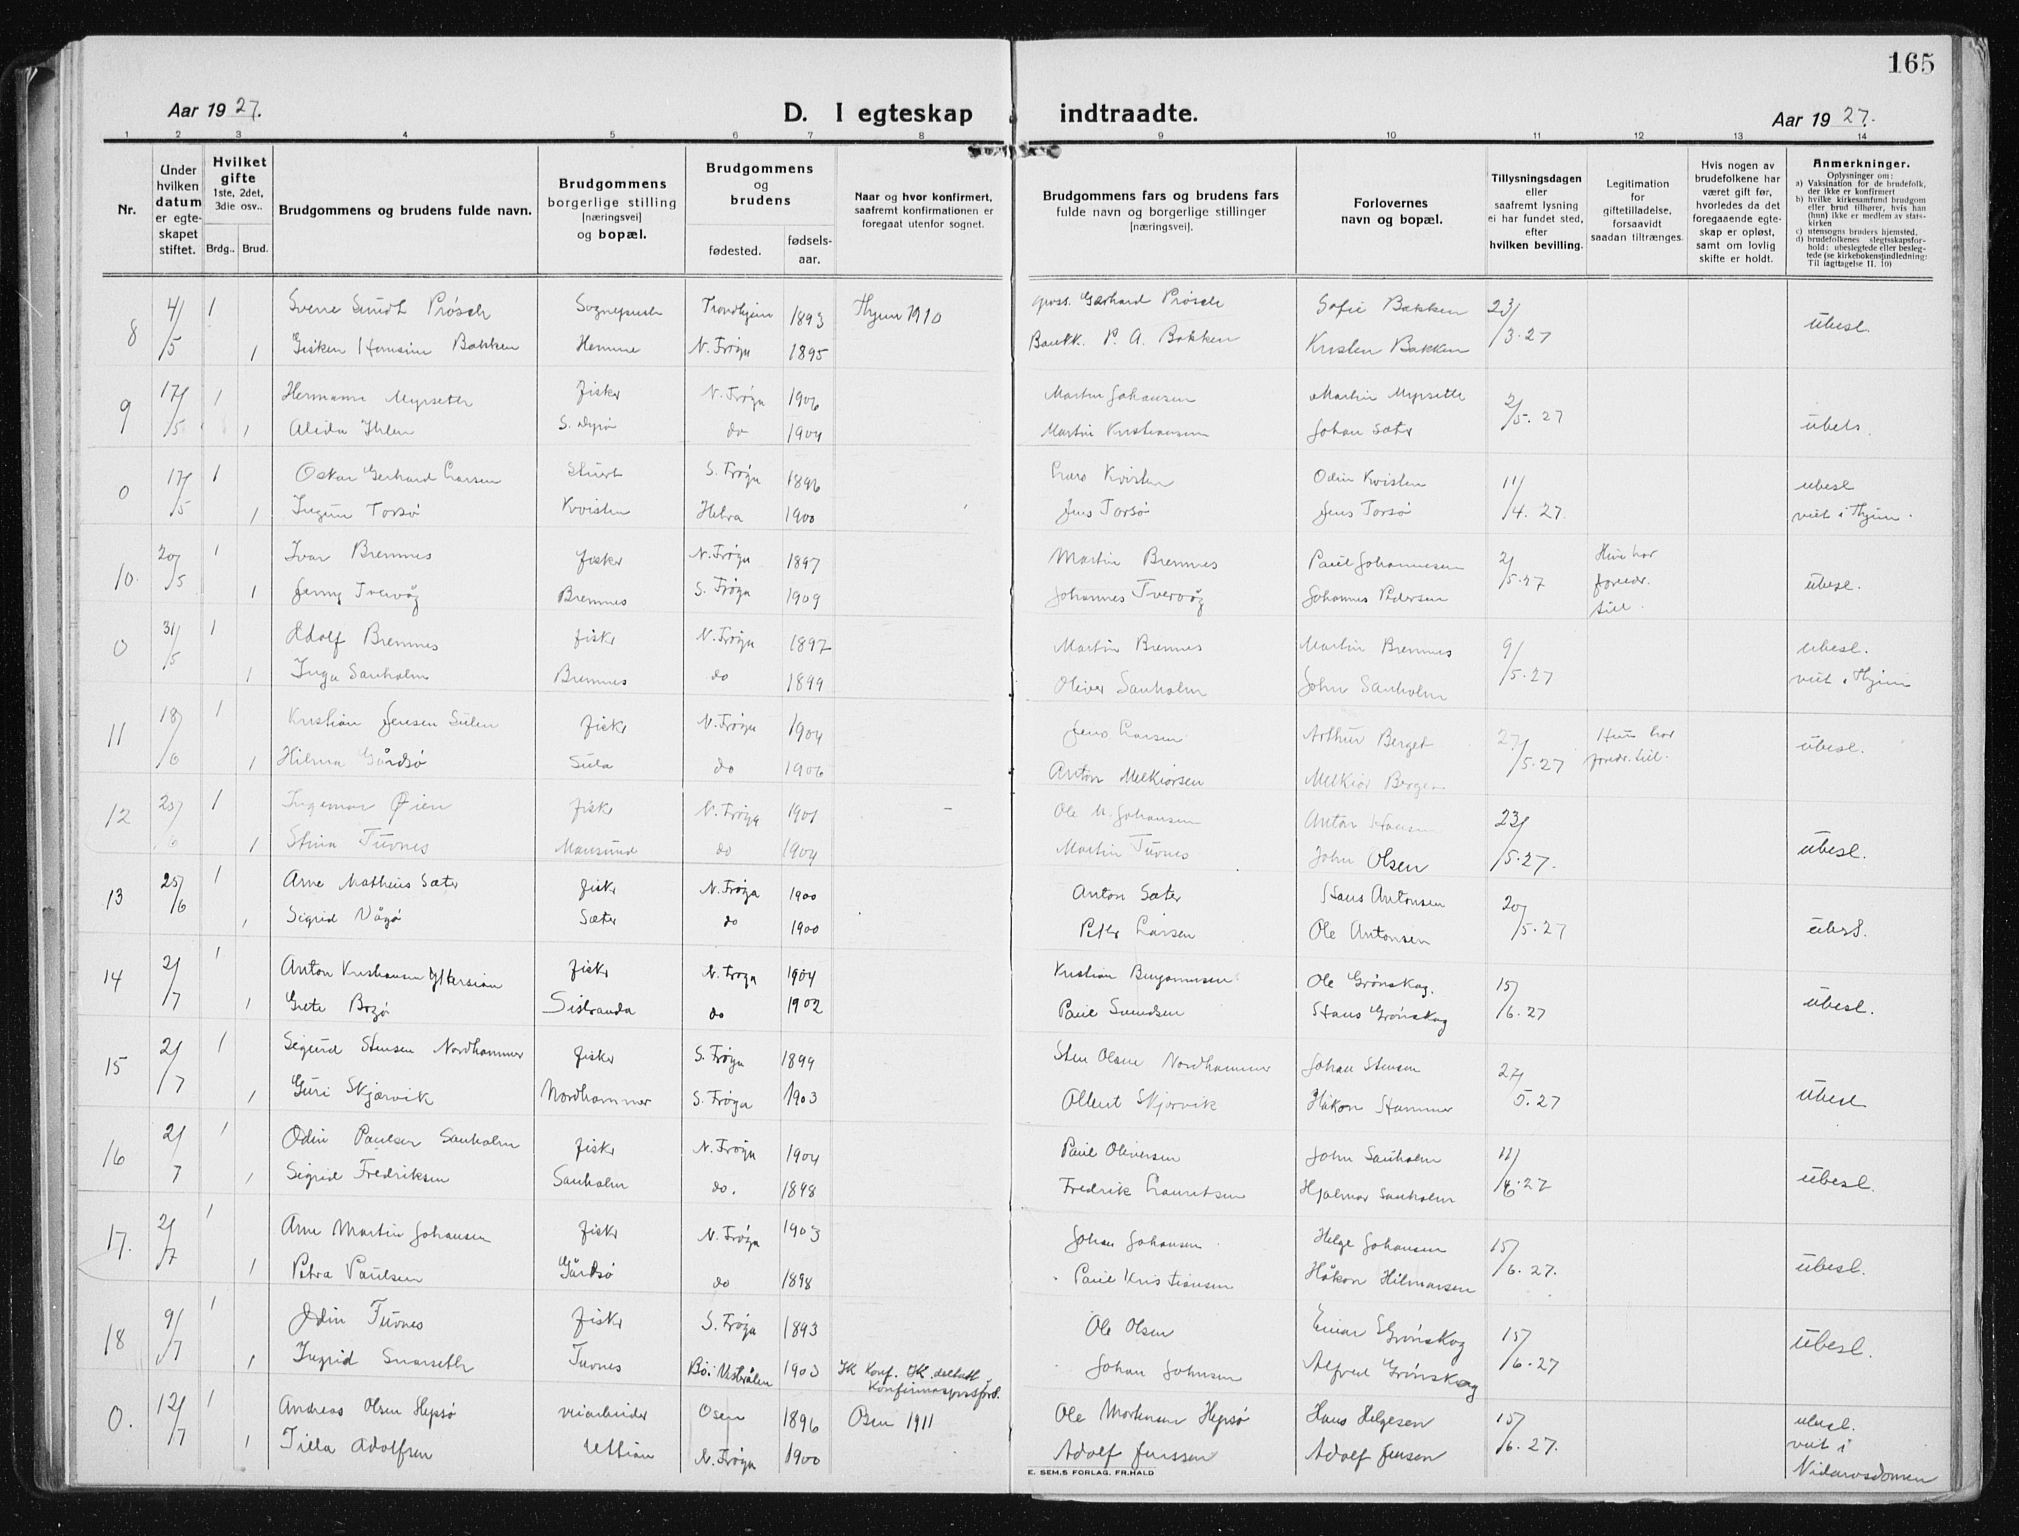 165
Aar 1927.
D. I egteskap indtraadte.
Aar 1927.
1 2 3 4 5 6 7 8 9 10 11 12 13 14
Nr.
Under hvilken datum er egteskapet stiftet.
Hvilket gifte 1ste, 2det, 3die osv..
Brdg.. Brud.
Brudgommens og brudens fulde navn.
Brudgommens borgerlige stilling [næringsvei] og bopæl.
Brudgommens og brudens
fødested. fødselsaar.
Naar og hvor konfirmert, saafremt konfirmationen er foregaat utenfor sognet.
Brudgommens fars og brudens fars fulde navn og borgerlige stillinger [næringsvei].
Forlovernes navn og bopæl.
Tillysningsdagen eller saafremt lysning ei har fundet sted, efter hvilken bevilling.
Legitimation for giftetilladelse, forsaavidt saadan tiltrænges.
Hvis nogen av brudefolkene har været gift før, hvorledes da det foregaaende egteskap er opløst, samt om lovlig skifte er holdt.
Anmerkninger.
Oplysninger om:
a) Vaksination for de brudefolk, der ikke er konfirmert
b) hvilke kirkesamfund brudgom eller brud tilhører, hvis han (hun) ikke er medlem av statskirken
c) utensogns bruders hjemsted.
d) brudefolkenes slegtskapsforhold: ubeslegtede eller beslegtede (se kirkebokens indledning: Til iagttagelse II. 10)
8 4/5 1 Sverre Smidt Prøsch Sogneprest Trondhjem 1893 Thjem 1910 gross. Gerhard Prøsch Sofie Bakken 23/3-27 ubesl.
1 Gisken Hansine Bakken Hemne N. Frøya 1895 Bankk. P. A. Bakken Kristen Bakken
9 17/5 1 Hermann Myrseth fisker N. Frøya 1906 Martin Johansen Martin Myrseth 2/5-27 ubels.
1 Alida Ihlen S. Dyrø do 1904 Martin Kristiansen Johan Sæter
0 17/5 1 Oskar Gerhard Larsen Stuert S. Frøya 1896 Lars Kvisten Odin Kvisten 11/4-27. ubesl
1 Torsø Kvisten Hitra 1900 Jens Torsø Jens Torsø viet i Thjem.
10. 20/5 1 Ivar Bremnes fisker N. Frøya 1897 Martin Bremnes Paul Johannesen 2/5-27 Hun har foreldr. till. ubesl.
1 Jenny Tvervåg Bremnes S. Frøya 1909 Johannes Tvervåg Johannes Pedersen
0 31/5 1 Adolf Bremnes fisker N. Frøya 1897 Martin Bremnes Martin Bremnes 9/5-27 ubesl.
1 Inga Sanholm Bremnes do 1899 Oliver Sanholm John Sanholm viet i Thjem
11 18/6 1 Kristian Jensen Sulen fisker N. Frøya 1904 Jens Larsen Arthur Berget 27/5-27 Hun har foreldr. till. ubesl.
1 Hilma Gårdsø Sula do 1906 Anton Melkiorsen Melkior
12 20/6 1 Ingemar Øien fisker N. Frøya 1901 Ole M. Johansen Anton Hansen 23/5-27. ubesl.
1 Stina Tuvnes Mausund do 1904 Martin Tuvnes John Olsen
13 25/6 1 Arne Mathias Sæter fisker N. Frøya 1900 Anton Sæter Hans Antonsen 20/5-27 ubesl.
1 Sigrid Vågø Sæter do 1900 Peter Larsen Ole Antonsen
14 2/7 1 Anton Kristiansen Yttersian fisker N. Frøya 1904 Kristian Benjaminsen Ole Grønskag. 15/6-27 ubesl.
1 Grete Bogø Sistranda do 1902 Paul Svendsen Hans Grønskag
15 2/7 1 Sigurd Stensen Nordhammer fisker S. Frøya 1899 Sten Olsen Nordhammer Johan Stensen 27/5-27 ubesl
1 Guri Skjærvik Nordhammer S. Frøya 1903 Ellert Skjervik Håkon Hammer
16 2/7 1 Odin Paulsen Sanholm fisker N. Frøya 1904 Paul Oliversen John Sanholm 11/6-27 ubesl.
1 Sigrid Fredriksen Sanholm do. 1898 Fredrik Lauritsen Hjalmar Sanholm
17. 2/7 1 Arne Martin Johansen fisker N. Frøya 1903 Johan Johansen Helge Johansen 15/6-27. ubesl.
1 Petra Paulsen Gårdsø do 1898 Paul Kristiansen Håkon Hilmarsen
18 9/7 1 Odin Tuvnes fisker S. Frøya 1893 Ole Olsen Einar Grønskag 15/6-27 ubesl.
1 Ingrid Snarseth Tuvnes Bø. Vesterålen 1903 IK Konf. IK deltatt Konfirmasjonsforb. Johan Johnsen Alfred Grønskag
0. 12/7 1 Andreas Olsen Hepsø veiarbeider Osen 1896 Osen 1911 Ole Mortensen Hepsø Hans Helgesen 15/6-27. ubesl.
1 Tilla Adolfsen Uttian N. Frøya 1900 Adolf Jenssen Adolf Jensen viet i Nidarosdomen
E. SEM.S FORLAG. FR.HALD